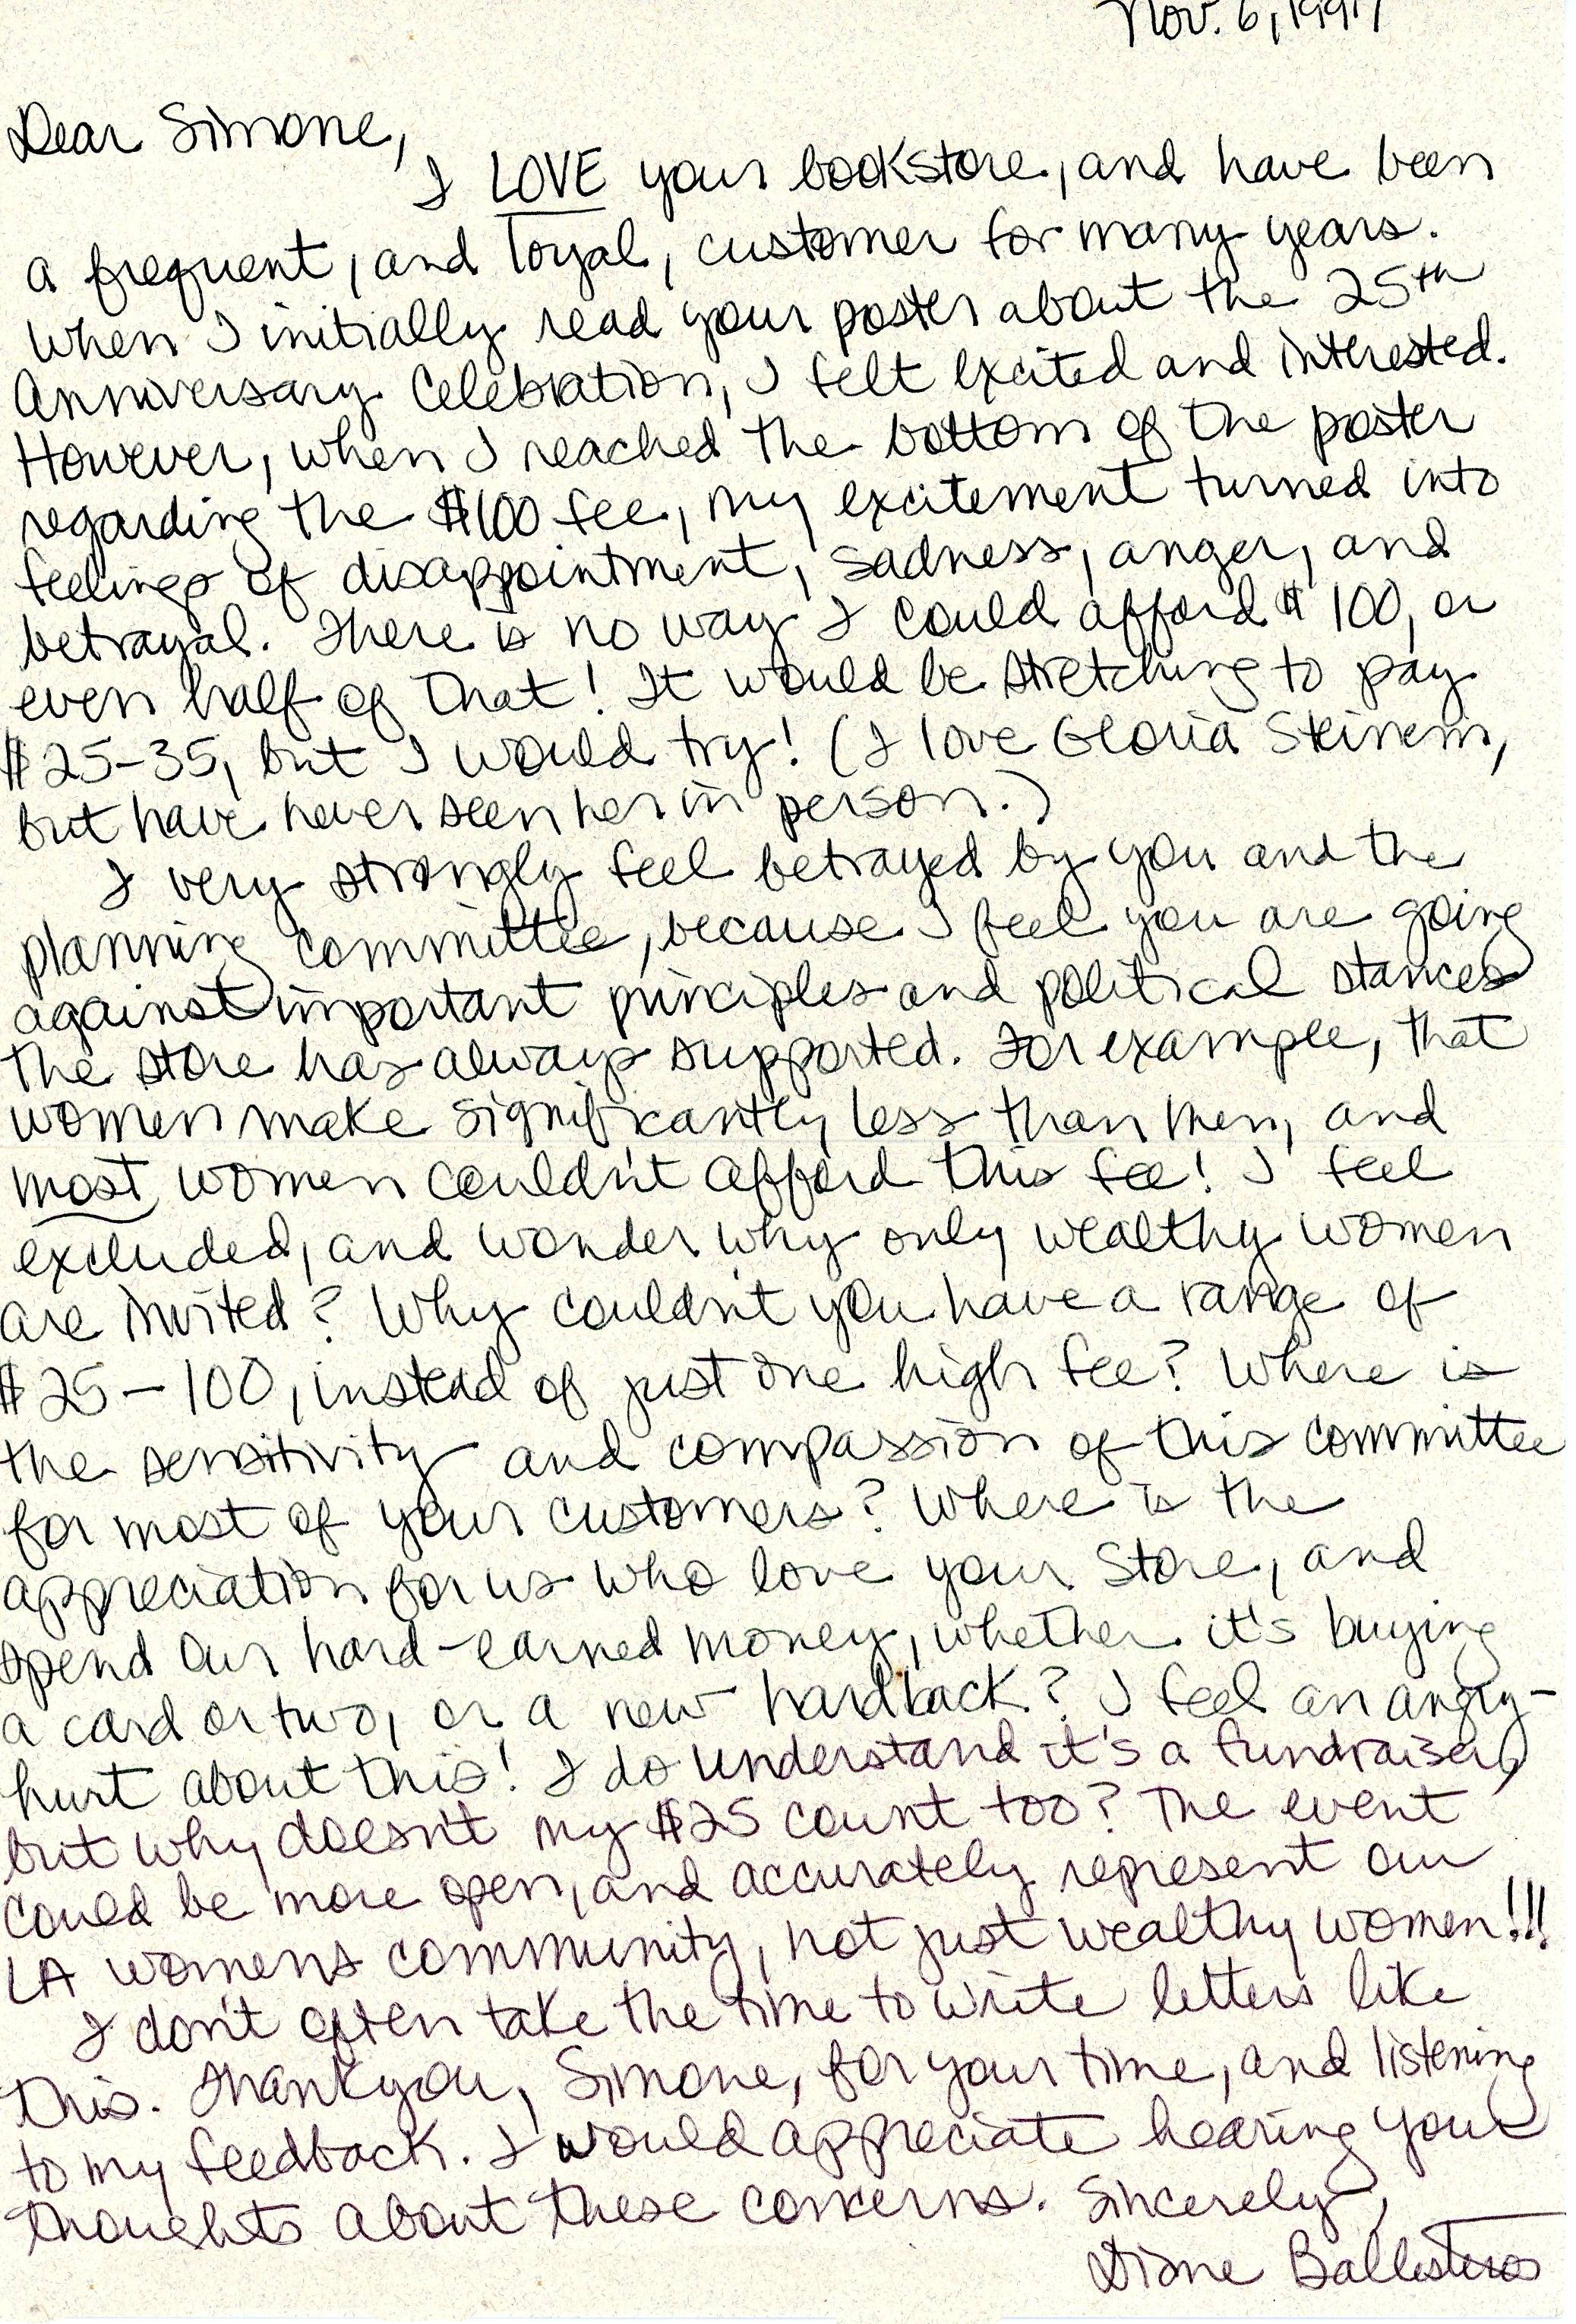 Nov. 6, 1997
Dear Simone,
I LOVE your bookstore, and have been
a frequent, and loyal, customer for many years.
When I initially read your poster about the 25th
Anniversary Celebration, I felt excited and interested.
However, when I reached the bottom of the poster
regarding the $100 fee, my excitement turned into
feelings of disappointment, sadness, anger, and
betrayal. There is no way I could afford $100, or
even half of that! It would be stretching to pay
$25-35, but I would try! (I love Gloria Steinem,
but have never seen her in person.)
I very strongly feel betrayed by you and the
planning committee, because I feel you are going
against important principles and political stances
the store has always supported. For example, that
women make significantly less than men, and
most women couldn't afford this fee! I feel
excluded, and wonder why only wealthy women
are invited? Why couldn't you have a range of
$25-100, instead of just one high fee? Where is
the sensitivity and compassion of this committee
for most of your customers? Where is the
appreciation for us who love your store, and
spend our hard-earned money, whether it's buying
a card or two, or a new hardback? I feel an angry-
hurt about this! I do understand it's a fundraiser,
but why doesn't my $25 count too? The event
could be more open, and accurately represent our
LA womens community, not just wealthy women!!!
I don't often take the time to write letters like
this. Thank you, Simone, for your time, and listening
to my feedback. I would appreciate hearing your
thoughts about these concerns. Sincerely,
Diane Ballesteros